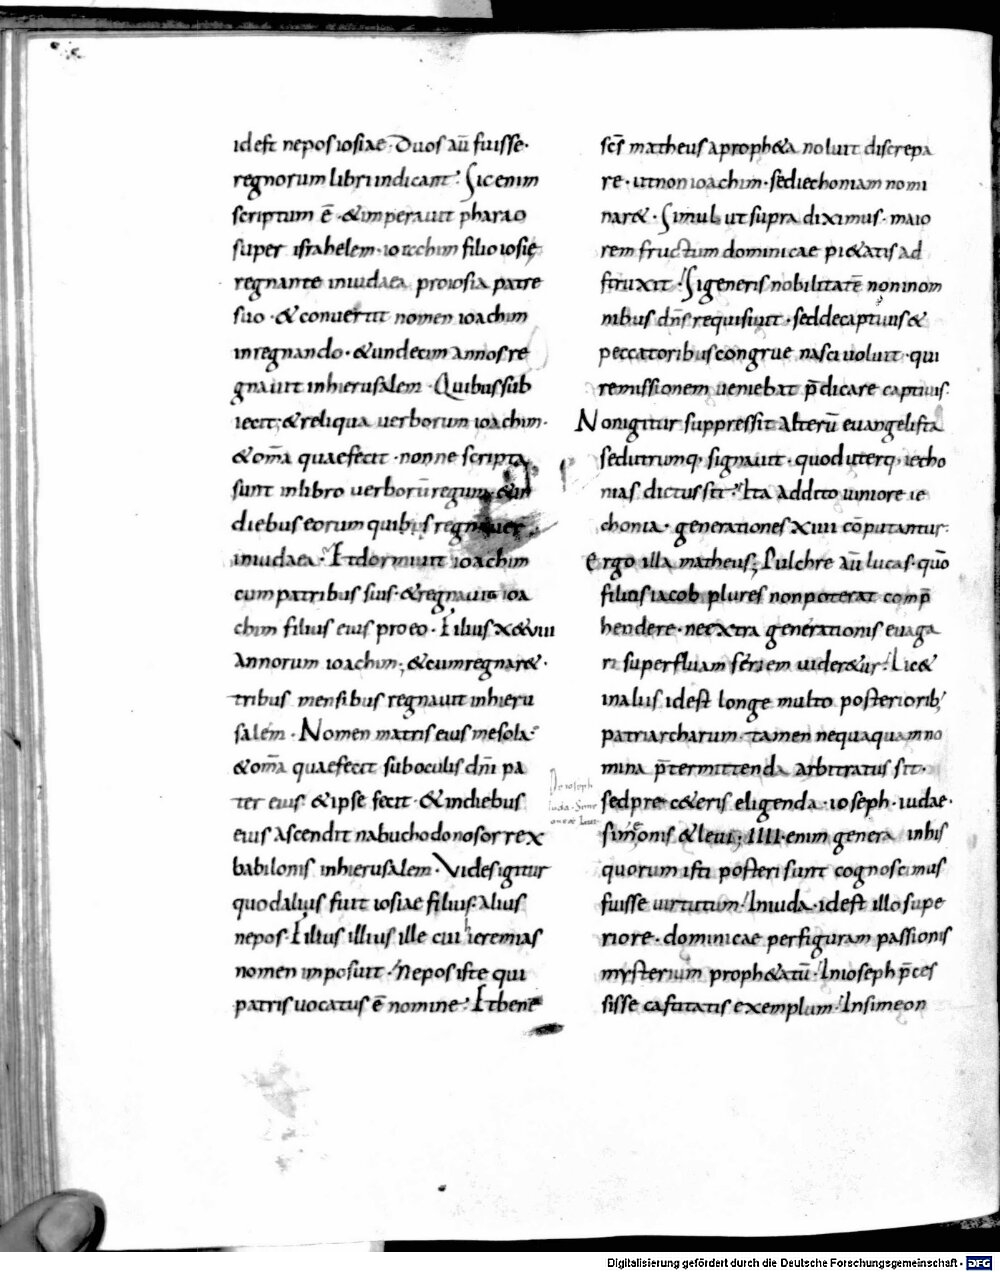 idest nepos iosiae · Duos aū fuisse ·
regnorum libri indicant · Sic enim
scriptum ē · & imperauit pharao
super israhelem · ioachim filio iosię
regnante iniudaea proiosia patre
suo · & conuertit nomen ioachim
inregnando · & undecim annos re
gnauit inhierusalem · Quibus sub
iecit · & reliqua uerborum ioachim ·
& om̄a quae fecit · nonne scripta
sunt inlibro uerborū regum · & in
diebus eorum quibus regnauer
iniudaea · Et dormiuit ioachim
cum patribus suis · & regnauit ioa
chim filius eius pro eo · Filius x&uiii
annorum ioachim ; & cum regnar& ·
tribus mensibus regnauit inhieru
salem · Nomen matris eius mesola ·
& om̄a quae fecit sub oculis dn̄i pa
ter eius · & ipse fecit · & indiebus
eius ascendit nabuchodonosor rex
babilonis inhierusalem · Vides igitur
quod alius fuit iosiae filius · alius
nepos · Filius illius ille cui ieremias
nomen imposuit · Nepos iste qui
patris uocatus ē nomine · Et bene
sc̄s matheus a proph&a noluit discrepa
re · ut non ioachim · sed iechoniam nomi
nar& · Simul ut supra diximus · maio
rem fructum dominicae pi&atis ad
struxit · Si generis nobilitatē non inom
nibus dn̄s requisiuit · sed decaptiuis &
peccatoribus congrue nasci uoluit · qui
remissionem ueniebat p̄dicare captiuis ·
Non igitur suppressit alterū euangelista
sed utrumq; signauit · quod uterq; iecho
nias dictus sit · Ita addito iuniore ie
chonia · generationes xiiii cōputantur ·
Ergo illa matheus ; Pulchre aū lucas · quō
filios iacob plures non poterat comp̄
hendere · ne extra generationis euaga
ri superfluam seriem uider&ur · Lic&
inaliis idest longe multo posteriorib;
patriarcharum · tamen nequaquam no
mina p̄termittenda arbitratus sit ·
sed pre c&eris eligenda · ioseph · iudae ·
simeonis & leui ; IIII · enim genera inhis
quorum isti posteri sunt cognoscimus
fuisse uirtutum · In iuda · idest illo supe
riore · dominicae per figuram passionis
mysterium proph&atū · In ioseph p̄ces
sisse castitatis exemplum · In simeon
De ioseph
iuda · Sime
one & leui
Digitalisierung gefördert durch die Deutsche Forschungsgemeinschaft - DFG